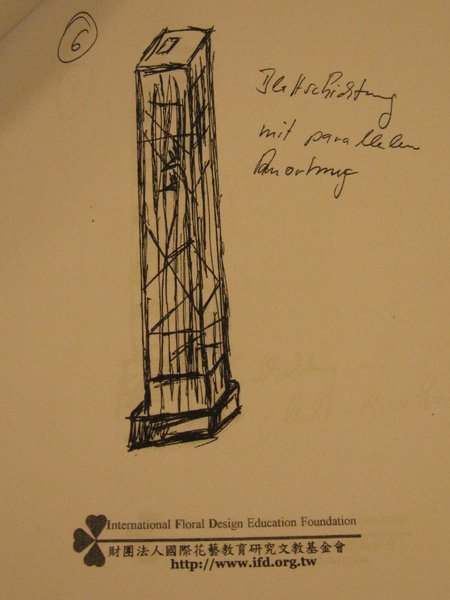 6
Blattschichtung
mit parallelen
Anordnung
International Floral Design Education Foundation
財團法人國際花藝教育研究文教基金會
http://www.ifd.org.tw